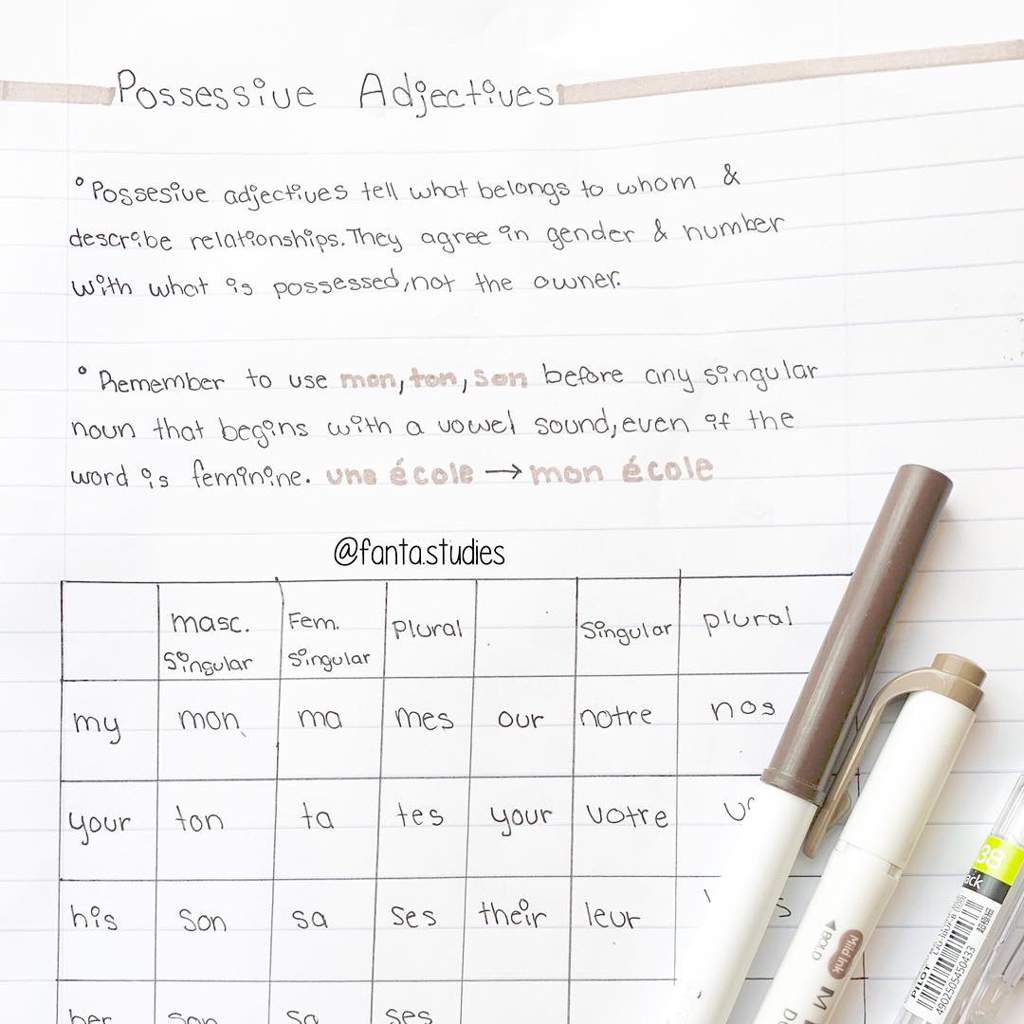 Possessive Adjectives
°Possesive adjectives tell what belongs to whom &
describe relationships. They agree in gender & number
with what is possessed, not the owner.
°Remember to use mon, ton, son before any singular
noun that begins with a vowel sound, even if the
word is feminine. une école → mon école
@fanta.studies
masc. Singular Fem. Singular Plural Singular plural
my mon ma mes our notre nos
your ton ta tes your votre
his son sa ses their leur
her son sa ses
Mild Ink
BOLD
38
PILOT
4902505450433